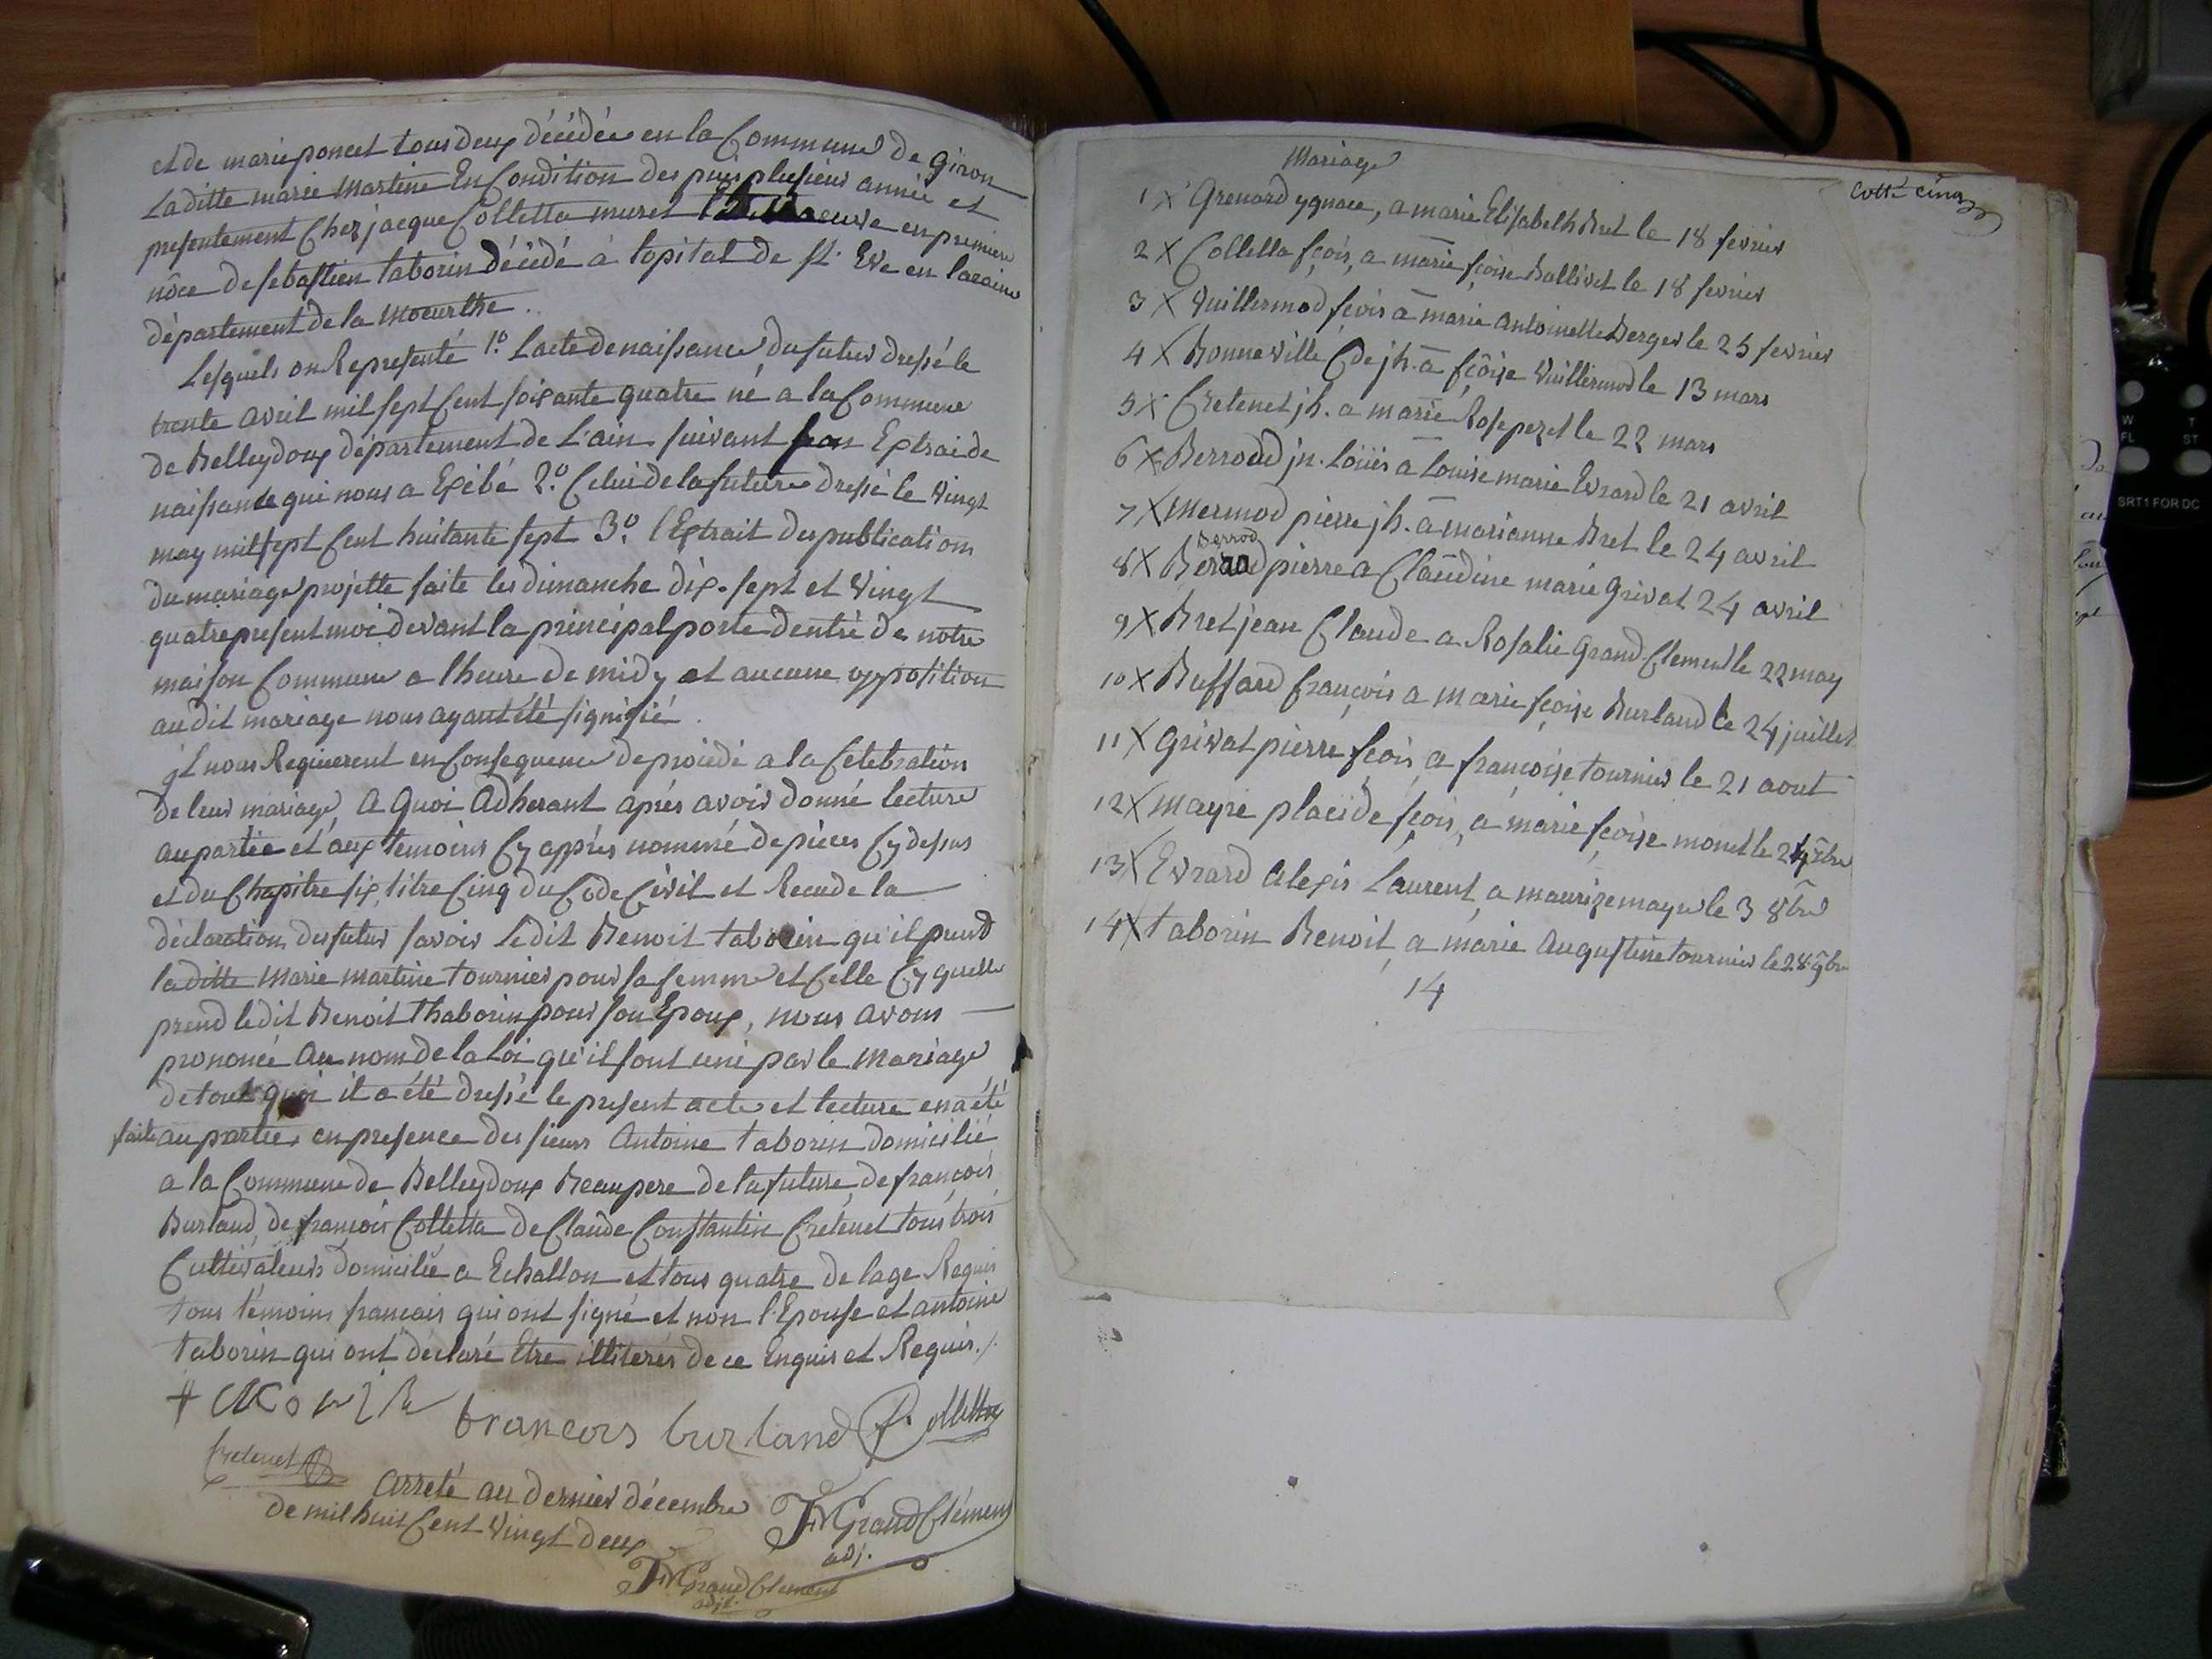 et de marie poncet tous deux décédée en la Commune de Giron
Laditte marie Martine En Condition des puis plusieur année et
presentement Chez jacque Colletta muret veuve en premiere
nôce de sebastien taborin décédé à lopital de st. Eve en laraine
département de la moeurthe.
Lesquels on Representé 1.º Lacte de naissance du futur dressé le
trente avril mil sept Cent soixante quatre né a la Commune
de Belleydoux département de L'ain suivant son Extrai de
naissance qui nous a Exibé 2.º Celui de la future dressé le vingt
may mil sept Cent huitante sept 3.º l'Extrait des publications
du mariage projetté faite les dimanche dix-sept et vingt
quatre present moi devant la principal porte dentré de notre
maison Commune a lheure de midy et aucune opposition
audit mariage nous ayant été signifié.
jl nous Requierent en Consequence de procédé a la Celebration
de leur mariage, a quoi adherant après avoir donné lecture
au partie et aux temoins Cy après nommé de pièces Cy dessus
et du Chapitre six, titre Cinq du Code Civil et Recu de la
déclaration des futur savoir Ledit Benoit taborin qu'il prend
laditte Marie martine tournier pour sa femme et Celle Cy quelle
prend ledit Benoit thaborin pour son Epoux, nous avons
prononcé au nom de la Loi qu'il sont uni par le mariage
de tout quoi il a été dressé le present acte et lecture en a été
faite au parties en presence des sieurs Antoine taborin domicilié
a la Commune de Belleydoux Beaupere de la future, de francois
Burland, de francois Colletta de Claude Constantin Cretenet tous trois
Cultivateurs domicilié a Echallon et tous quatre de lage Requis
tous témoins francais qui ont signé et non l'Epouse et antoine
taborin qui ont déclaré Etre illiterés de ce Enquis et Requis./.
francois burland Colletta
Cretenet
arreté au dernier décembre
de mil huit Cent vingt deux
GrandClément
adj.
GrandClement
adjt.
Mariage
Cotté cinq
1 X Grenard ygnace, a marie Elisabelh Bret le 18 fevrier
2 X Colletta fçois, a marie fçoise Ballivet le 18 fevrier
3 X Vuillermod fçois a marie antoinette Berger le 25 fevrier
4 X Bonneville Cde jh. a fçoise Vuillermod le 13 mars
5 X Cretenet jh. a marie Rose pezet le 22 mars
6 X Berrodd jn. Loüis a Louise marie Evrard le 21 avril
7 X Mermod pierre jh. a marianne Bret le 24 avril
berrod
8 X Berrod pierre a Claudine marie Grivat 24 avril
9 X Bret jean Claude a Rosalie Grand-Clement le 22 may
10 X Buffard françois a marie fçoise Burland le 24 juillet
11 X Grivat pierre fçois a françoise tournier le 21 aout
12 X mayre placide fçois, a marie fçoise monet le 24 7bre
13 X Evrard alexis Laurent, a maurize mayre le 3 8bre
14 X taborin Benoit, a marie Augustine tournier le 28 9bre
14
W
FL
T
ST
SRT1 FOR DC